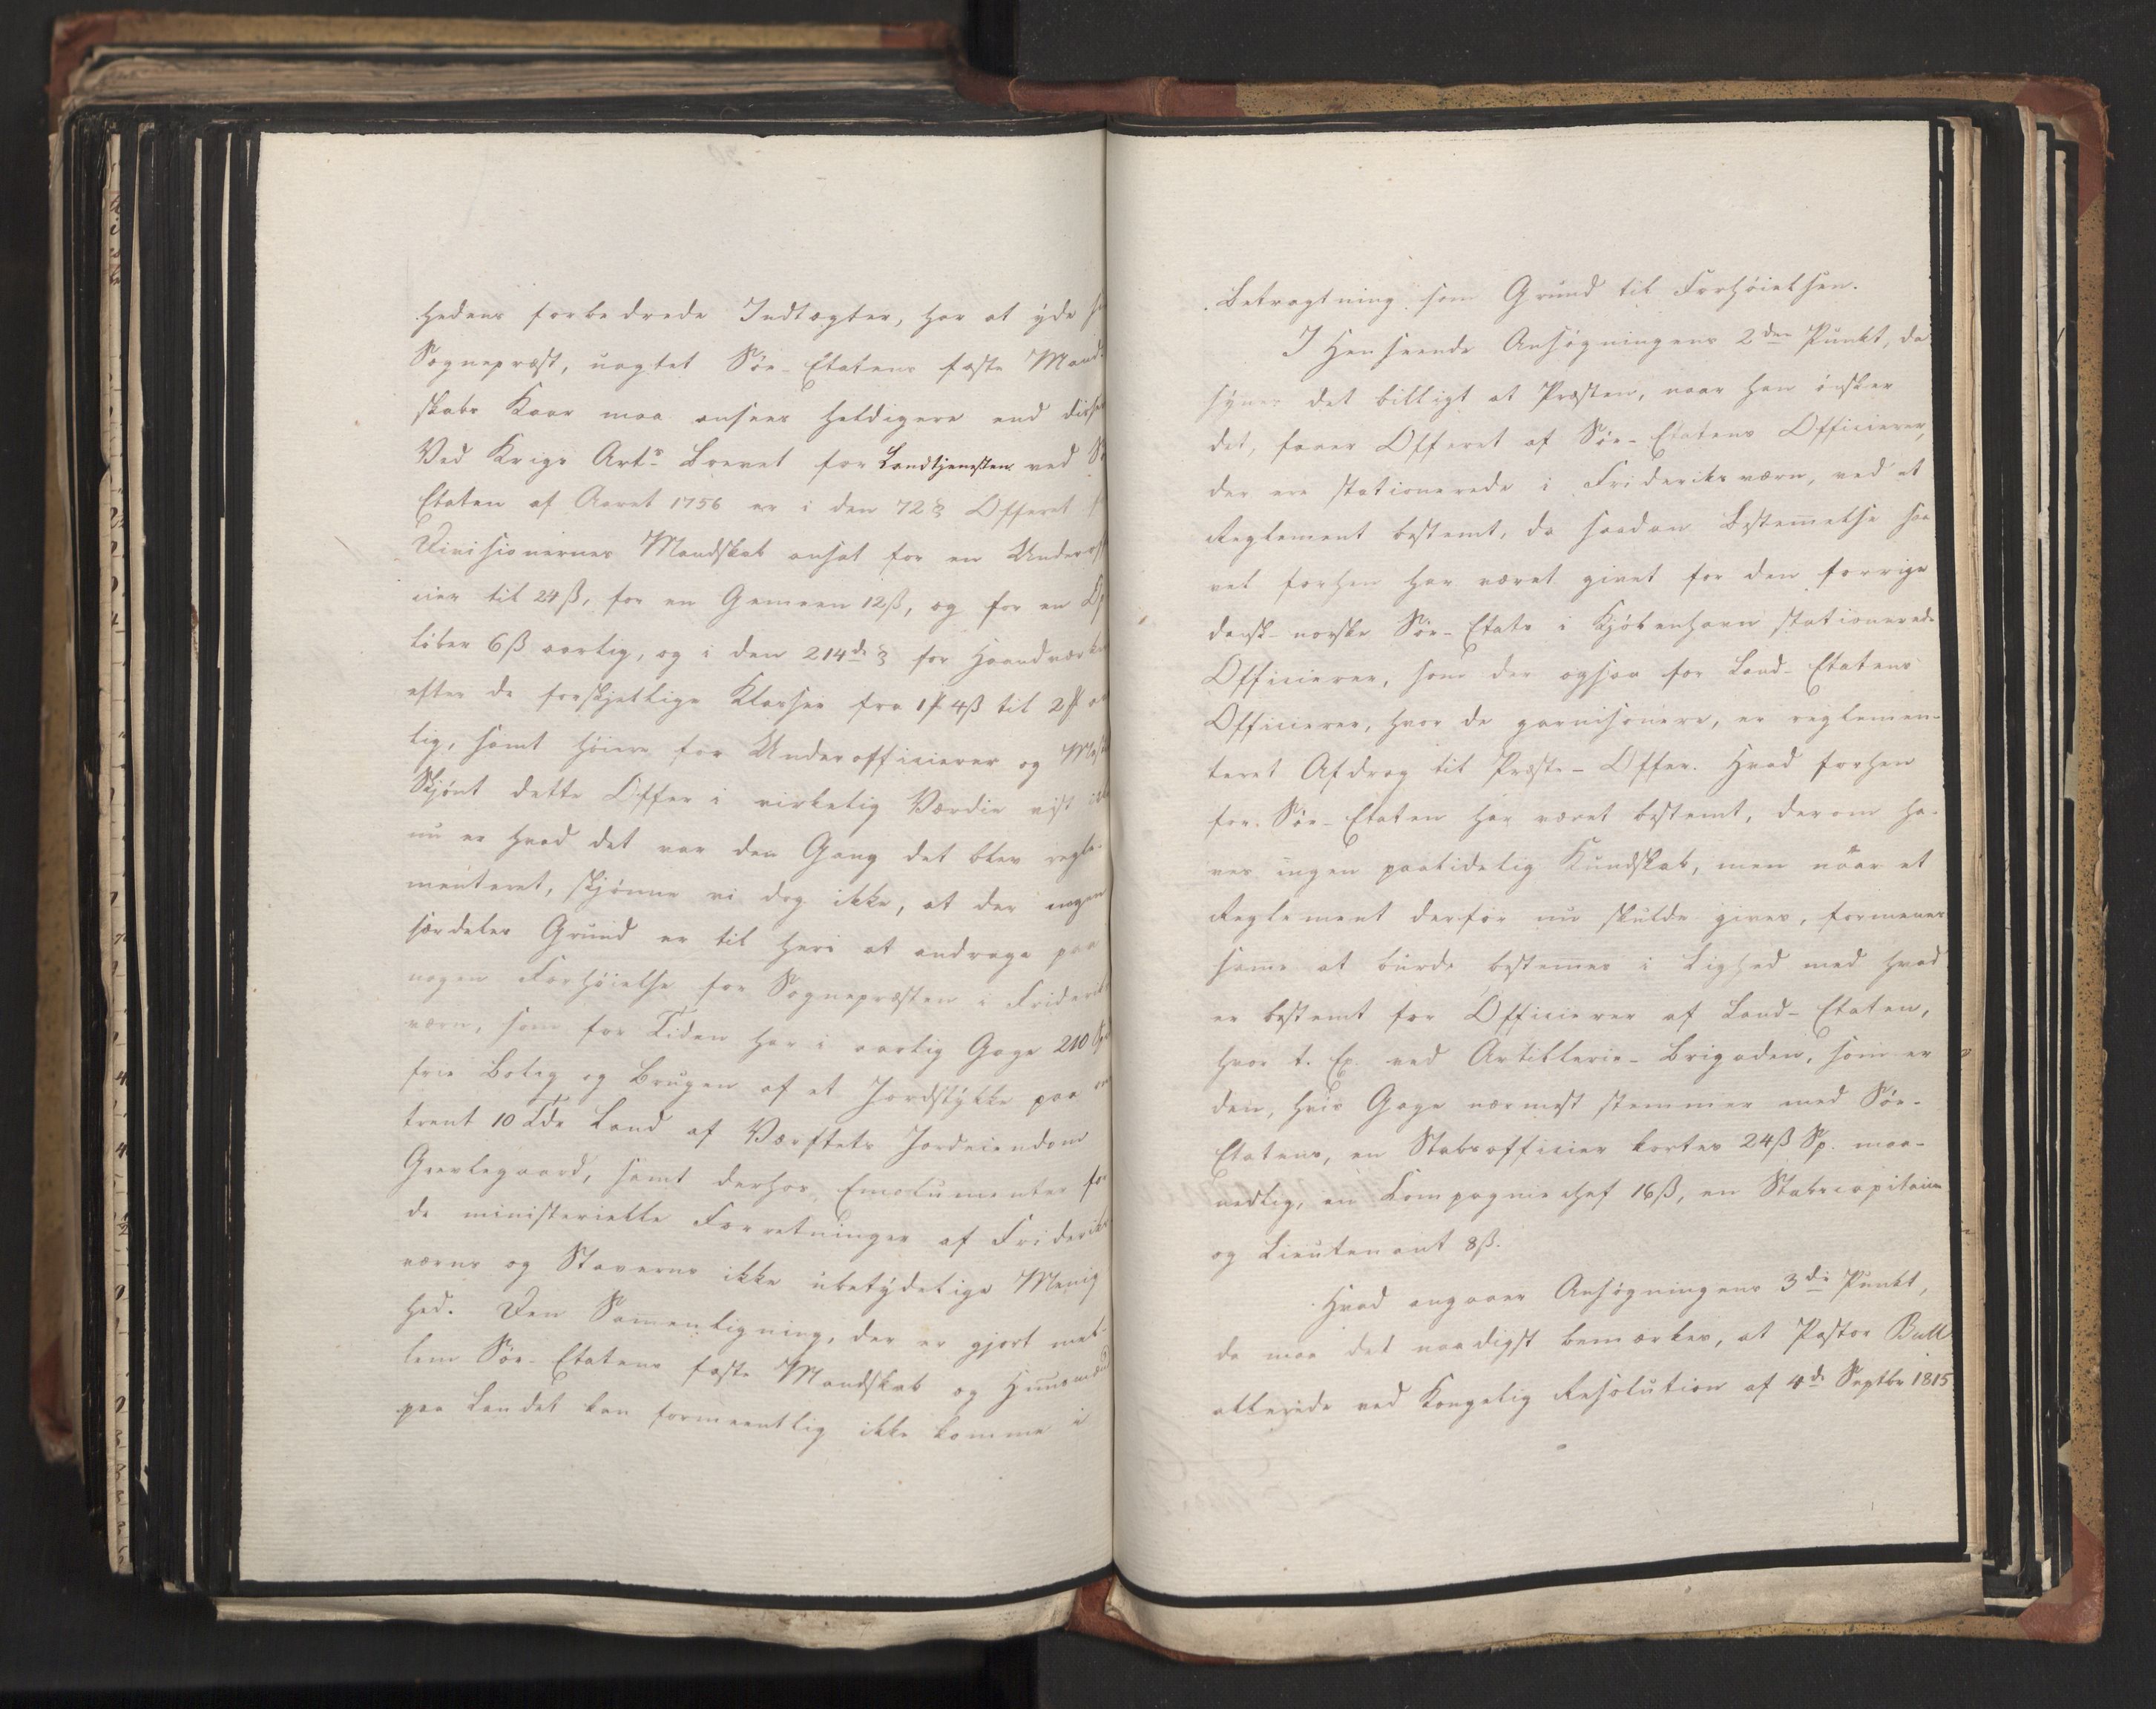 hedens forbedrede Indtægter, har at yde
Sognepræst, uagtet Søe-Etatens faste Mand-
skabs Kaar maa ansees heldigere end disses
Ved Krigs Arts Brevet for Landtjenesten ved
Etaten af Aaret 1756 er i den 72 § Offeret
Divisionernes Mandskab ansat for en Underoff
cier til 24 ß, for en Gemeen 12 ß, og for en Op
løber 6 ß aarlig, og i den 214de § for Haandværkere
efter de forskjellige Klasser fra 1 4 ß til 2 aar
lig, samt høiere for Underofficierer og
Skjønt dette Offer i virkelig Værdie vist ikke
nu er hvad det var den Gang det blev regle-
menteret, skjønne vi dog ikke, at der ingen
særdeles Grund er til heri at andrage paa
nogen Forhøielse for Sognepræsten i Frideriks
værn, som for Tiden har i aarlig Gage 210 Sp
frie Bolig og Brugen af et Jordstykke paa om
trent 10 Tdr Land af Værftets Jordeiendom
Grevlegaard, samt derhos Emolumenter for
de ministerielle Forretninger af Frideriks
værns og Staverns ikke ubetydelige Menig
hed. Den Samenligning, der er gjort mel-
lem Søe-Etatens faste Mandskab og Huusmænd
paa Landet kan formeentlig ikke komme i
Betragtning som Grund til Forhøielsen.
I Henseende Ansøgningens 2den Punkt, da
synes det billigt at Præsten, naar han ønsker
det, faaer Offeret af Søe-Etatens Officierer,
der ere stationerede i Frideriksværn, ved et
Reglement bestemt, da saadan Bestemelse saa
vel forhen har været givet for den forrige
dansk-norske Søe-Etats i Kjøbenhavn stationerede
Officierer, som der ogsaa for Land-Etatens
Officierer, hvor de garnisonere, er reglemen-
teret Afdrag til Præste-Offer. Hvad forhen
for Søe-Etaten har været bestemt, derom ha-
ves ingen paalidelig Kundskab, men naar et
Reglement derfor nu skulde gives, formenes
same at burde bestemes i Lighed med hvad
er bestemt for Officierer af Land-Etaten,
hvor t. Ex. ved Artillerie-Brigaden, som er
den, hvis Gage nærmest stemmer med Søe-
Etatens, en Stabsofficier kortes 24 ß Sp. maa-
nedlig, en Kompagniechef 16 ß, en Stabscapitain
og Lieutenant 8 ß.
Hvad angaaer Ansøgningens 3die Punkt,
da maa det naadigst bemærkes, at Pastor Bull
allerede ved Kongelig Resolution af 4de Septbr 1815